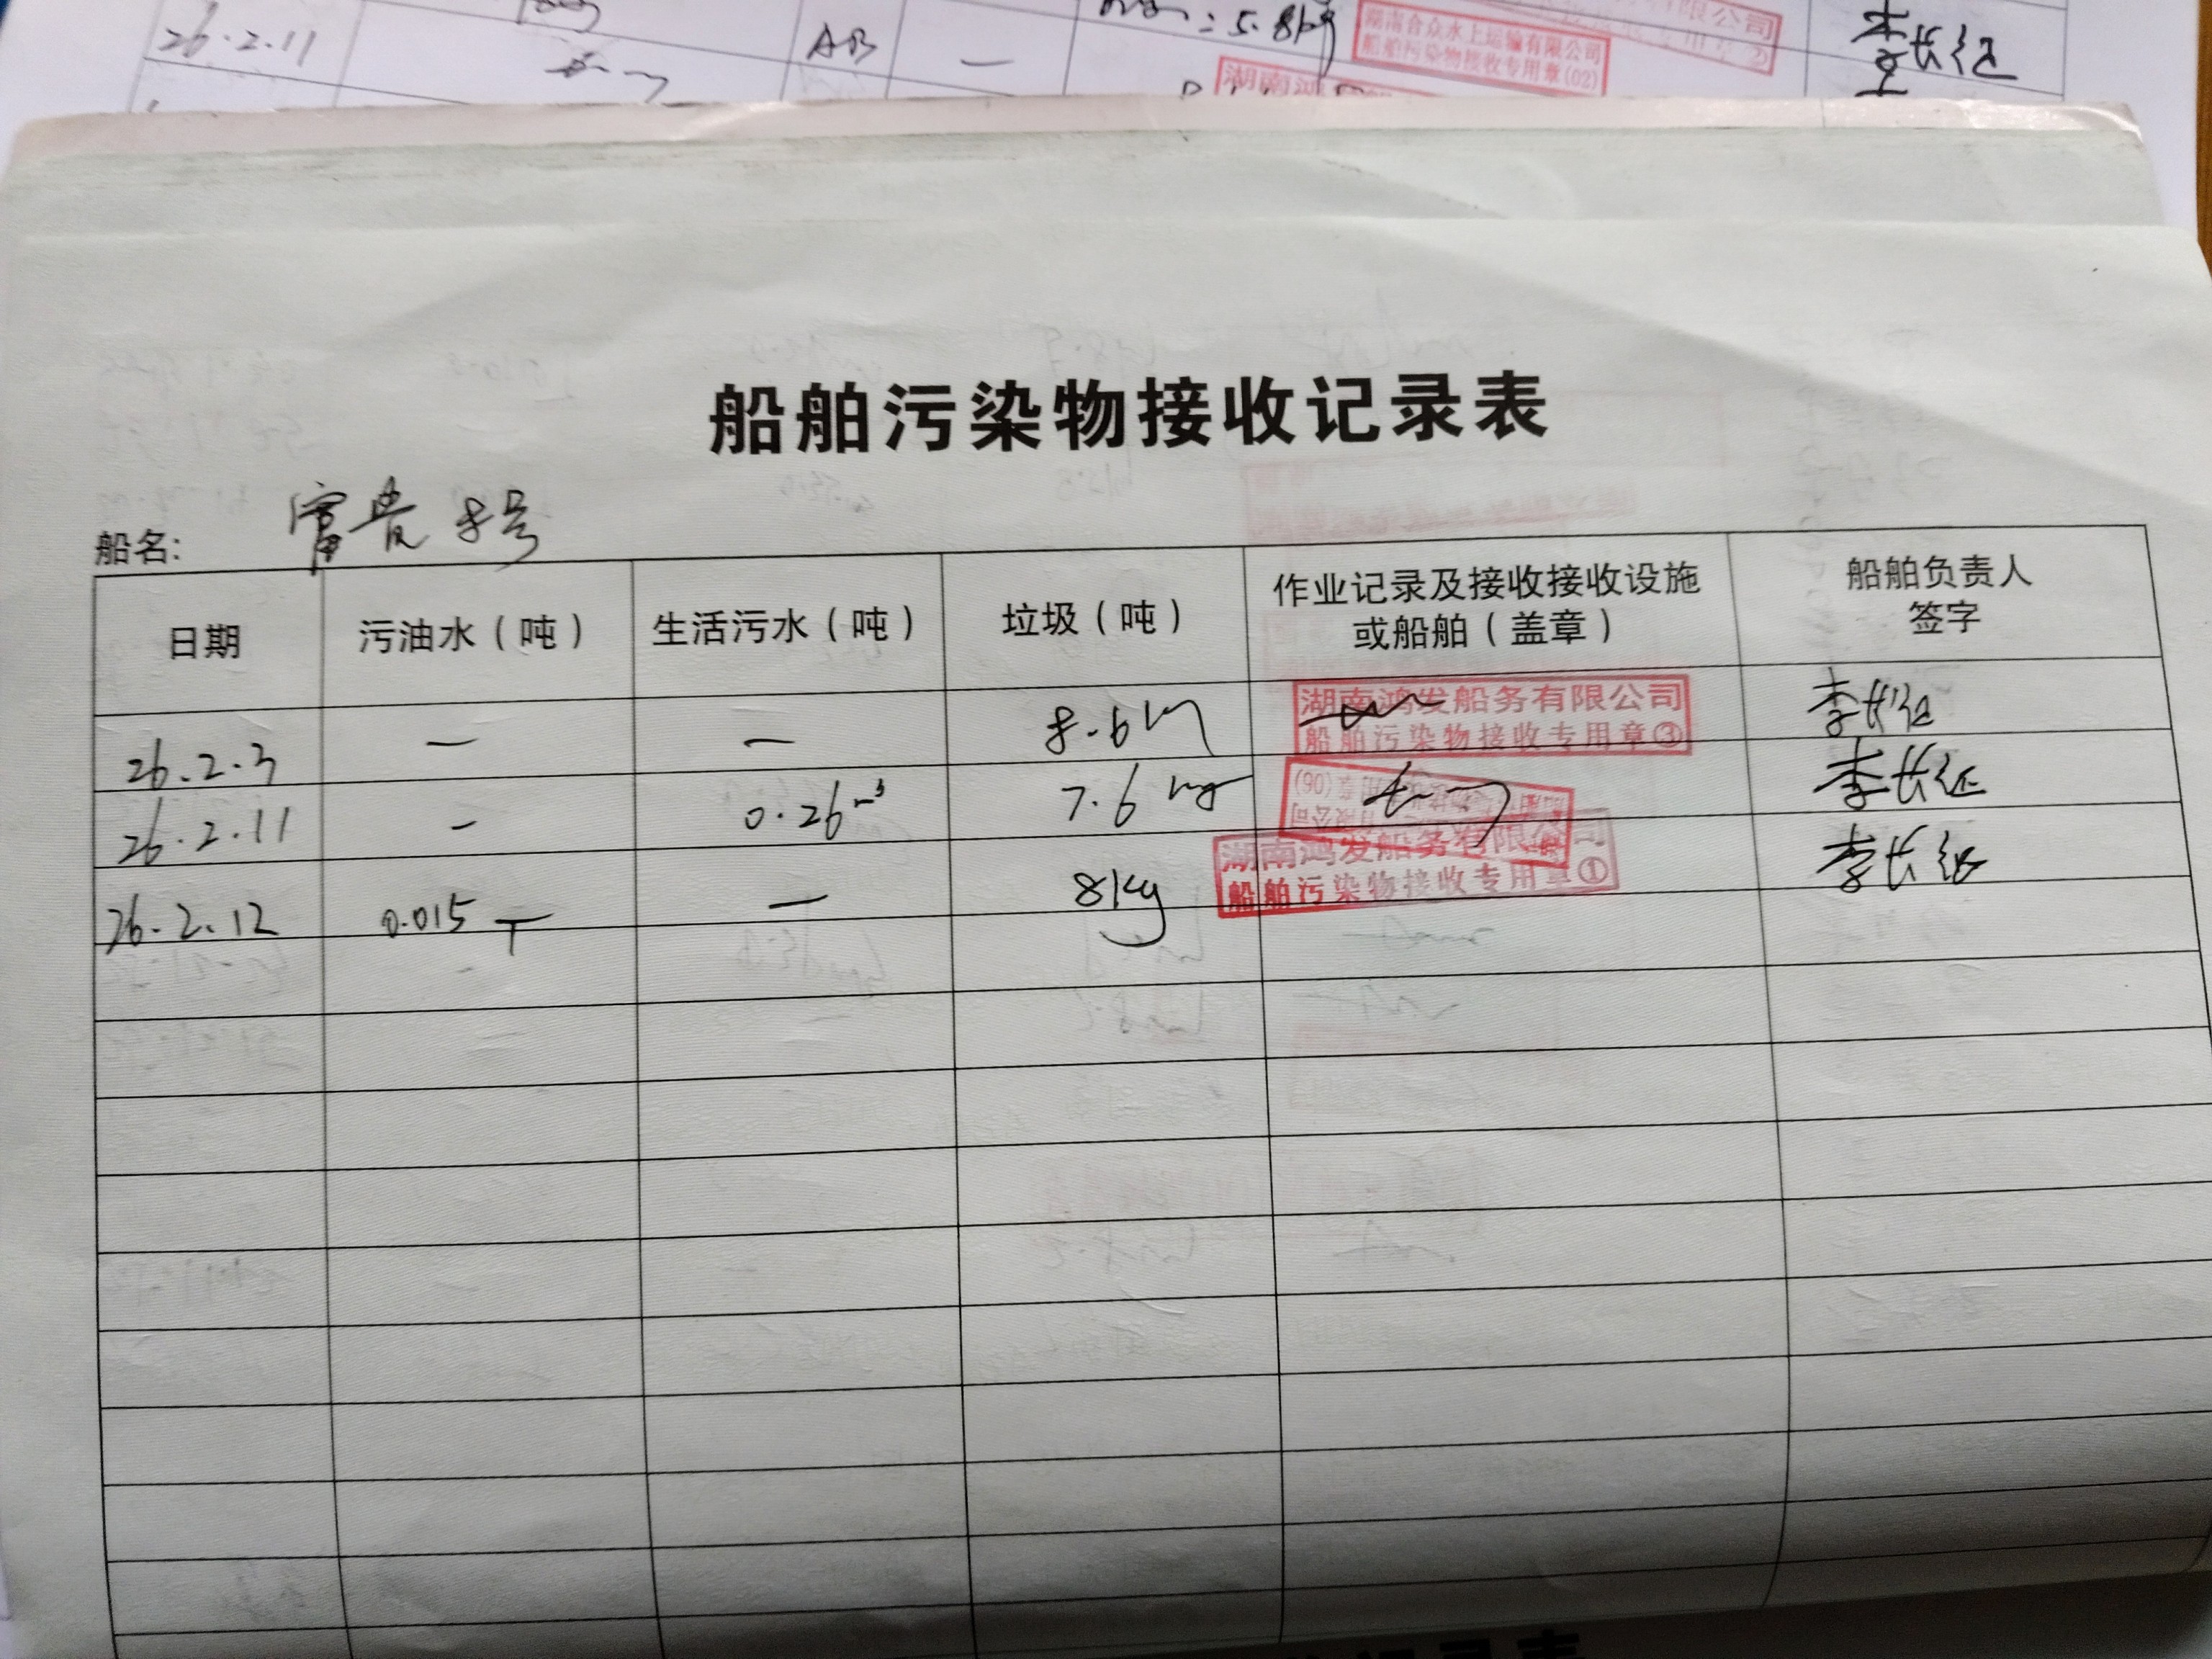 26.2.11 AB — =5.8kg 李长征
湖南合众水上运输有限公司
船舶污染物接收专用章(02)
湖南鸿
船舶污染物接收记录表
船名: 富贵8号
日期 污油水(吨) 生活污水(吨) 垃圾(吨) 作业记录及接收接收设施或船舶(盖章) 船舶负责人签字
26.2.3 — — 8.6kg 湖南鸿发船务有限公司 李长征
船舶污染物接收专用章③
26.2.11 — 0.26m³ 7.6kg (06) 李长征
26.2.12 0.015T — 8kg 湖南鸿发船务有限公司 李长征
船舶污染物接收专用章①